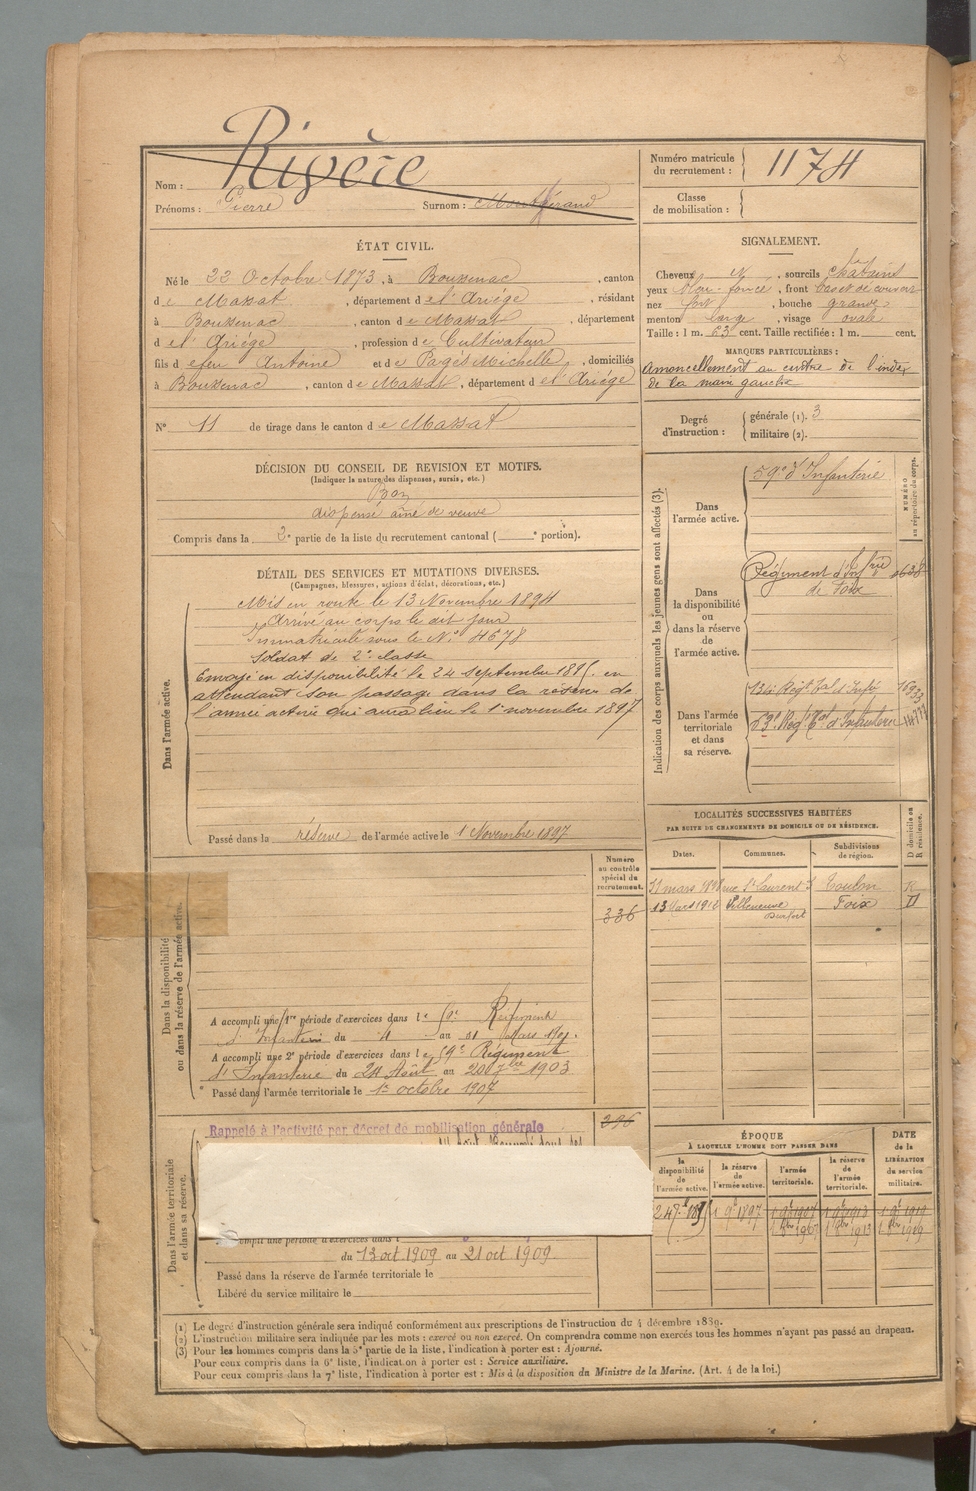 Rivère
Nom :
Prénoms : Pierre Surnom :
Numéro matricule du recrutement : 1174
Classe de mobilisation :
ÉTAT CIVIL.
Né le 22 Octobre 1873, à Boussenac, canton
de Massat, département de l'Ariége, résidant
à Boussenac, canton de Massat, département
de l'Ariége, profession de Cultivateur
fils de feu Antoine et de Pagès Michelle, domiciliés
à Boussenac, canton de Massat, département de l'Ariége
N° 11 de tirage dans le canton de Massat
DÉCISION DU CONSEIL DE REVISION ET MOTIFS.
(Indiquer la nature des dispenses, sursis, etc.)
Bon
dispensé aîné de veuve
Compris dans la 2e partie de la liste du recrutement cantonal ( e portion).
DÉTAIL DES SERVICES ET MUTATIONS DIVERSES.
(Campagnes, blessures, actions d'éclat, décorations, etc.)
Dans l'armée active.
Mis en route le 13 Novembre 1894
Arrivé au corps le dit jour
immatriculé sous le N° 4678
Soldat de 2e classe
Envoyé en disponibilité le 24 septembre 1895 en
attendant son passage dans la réserve de
l'armée active qui aura lieu le 1er novembre 1897
Passé dans la réserve de l'armée active le 1 Novembre 1897
Numéro au contrôle spécial du recrutement.
336
Dans la disponibilité ou dans la réserve de l'armée active.
A accompli une 1re période d'exercices dans le 59e Régiment
d'Infanterie du 4 au 31 Mars 1901.
A accompli une 2e période d'exercices dans le 59e Régiment
d'Infanterie du 24 Août au 20 7bre 1903
Passé dans l'armée territoriale le 1er octobre 1907
336
Dans l'armée territoriale et dans sa réserve.
Rappelé à l'activité par décret de mobilisation générale
une période d'exercices dans l
du 13 oct 1909 au 21 oct 1909
Passé dans la réserve de l'armée territoriale le
Libéré du service militaire le
SIGNALEMENT.
Cheveux N, sourcils châtains
yeux foncé, front bas et découvert
nez fort, bouche grande
menton large, visage ovale
Taille : 1 m. 63 cent. Taille rectifiée : 1 m. cent.
MARQUES PARTICULIÈRES :
amoncellement au centre de l'index
de la main gauche
Degré d'instruction : générale (1). 3
militaire (2).
Indication des corps auxquels les jeunes gens sont affectés (3).
NUMÉRO au répertoire du corps.
Dans l'armée active.
59e d'Infanterie
Dans la disponibilité ou dans la réserve de l'armée active.
Régiment d'Infrie
de Foix
Dans l'armée territoriale et dans sa réserve.
LOCALITÉS SUCCESSIVES HABITÉES
PAR SUITE DE CHANGEMENTS DE DOMICILE OU DE RÉSIDENCE.
Dates. Communes. Subdivisions de région. D domicile ou R résidence.
11 mars 1898 rue St Laurent Toulon R
13 Mars 1912 Villeneuve Foix D
ÉPOQUE
À LAQUELLE L'HOMME DOIT PASSER DANS
la disponibilité de l'armée active. la réserve de l'armée active. l'armée territoriale. la réserve de l'armée territoriale. DATE de la LIBÉRATION du service militaire.
(1) Le degré d'instruction générale sera indiqué conformément aux prescriptions de l'instruction du 4 décembre 1889.
(2) L'instruction militaire sera indiquée par les mots : exercé ou non exercé. On comprendra comme non exercés tous les hommes n'ayant pas passé au drapeau.
(3) Pour les hommes compris dans la 5e partie de la liste, l'indication à porter est : Ajourné.
Pour ceux compris dans la 6e liste, l'indication à porter est : Service auxiliaire.
Pour ceux compris dans la 7e liste, l'indication à porter est : Mis à la disposition du Ministre de la Marine. (Art. 4 de la loi.)